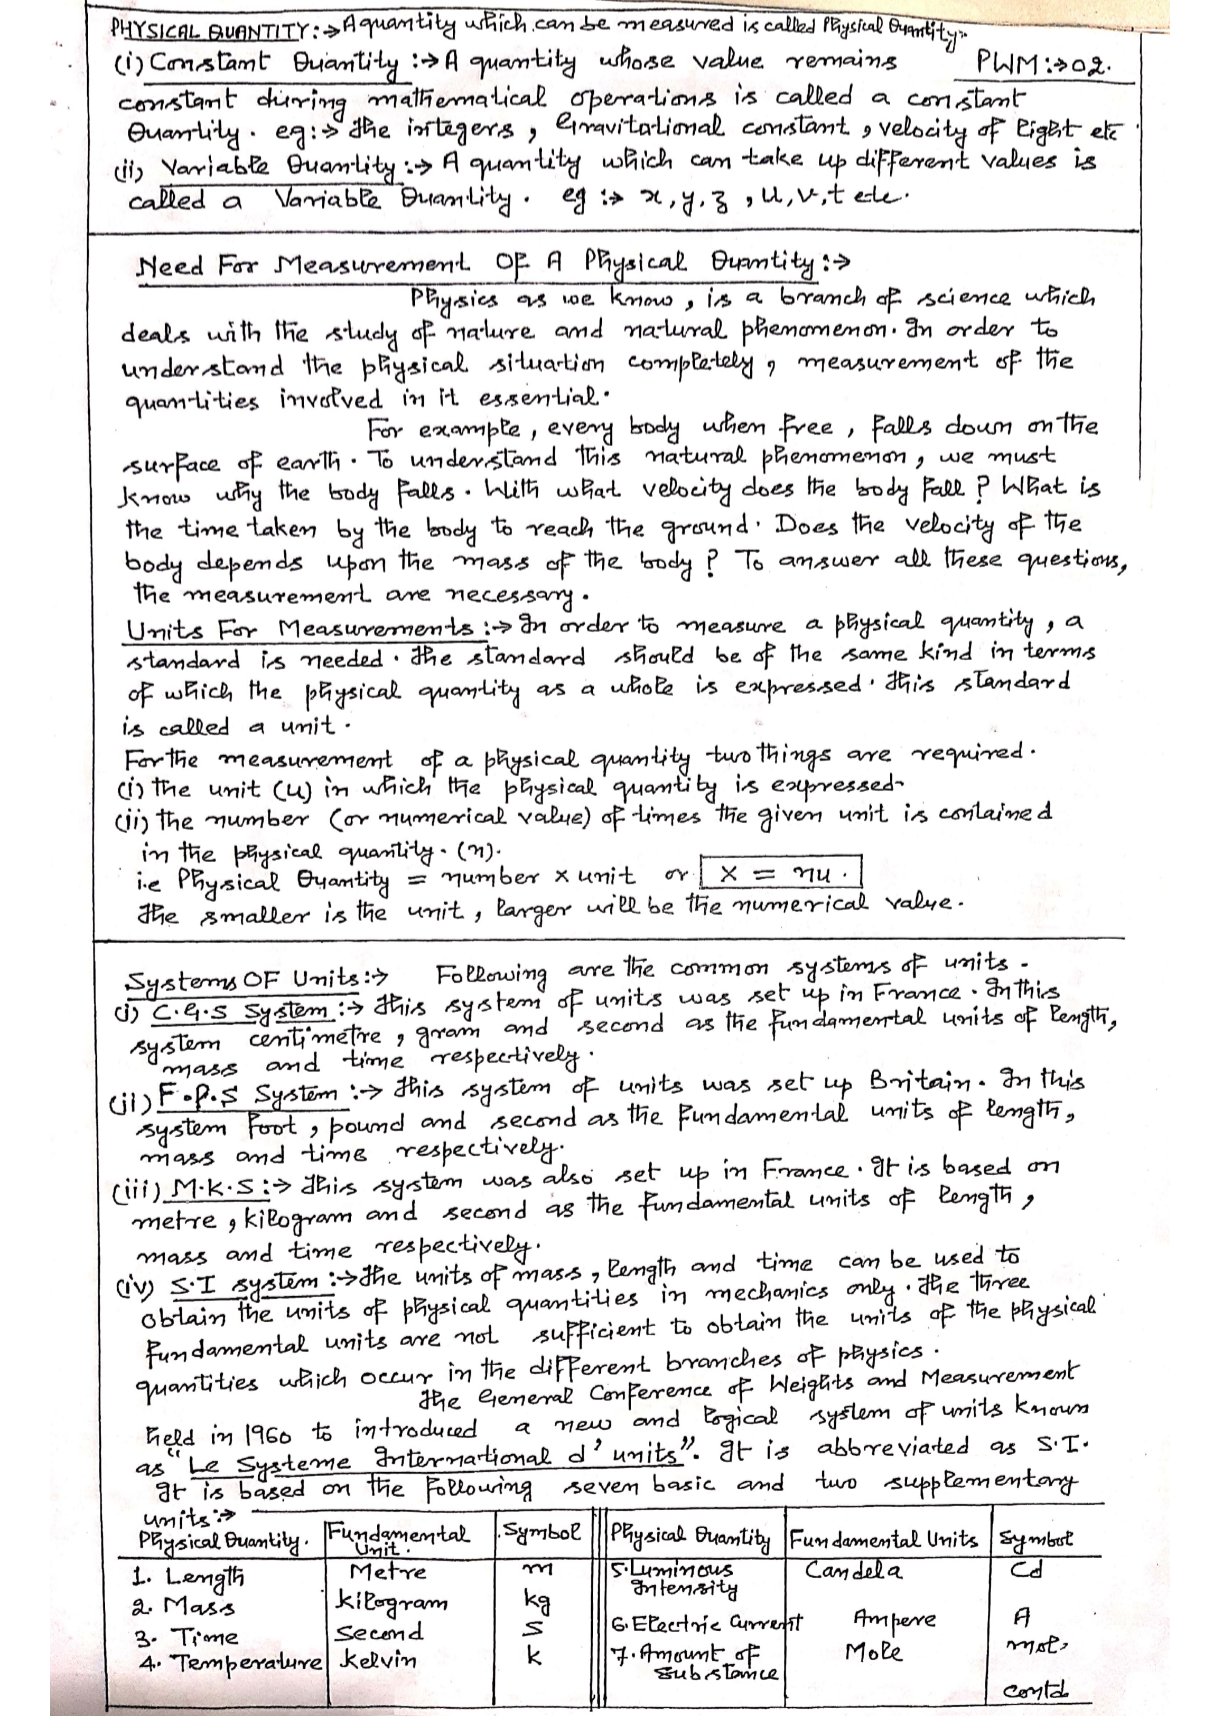 PHYSICAL QUANTITY:→ A quantity which can be measured is called Physical Quantity.
(i) Constant Quantity :→ A quantity whose value remains PWM:→02.
constant during mathematical operations is called a constant
Quantity. eg:→ The integers, Gravitational constant, velocity of light etc.
(ii) Variable Quantity :→ A quantity which can take up different values is
called a Variable Quantity. eg :→ x, y, z, u, v, t etc.
Need For Measurement OF A Physical Quantity :→
Physics as we know, is a branch of science which
deals with the study of nature and natural phenomenon. In order to
understand the physical situation completely, measurement of the
quantities involved in it essential.
For example, every body when free, falls down on the
surface of earth. To understand this natural phenomenon, we must
know why the body falls. With what velocity does the body fall? What is
the time taken by the body to reach the ground. Does the velocity of the
body depends upon the mass of the body? To answer all these questions,
the measurement are necessary.
Units For Measurements :→ In order to measure a physical quantity, a
standard is needed. The standard should be of the same kind in terms
of which the physical quantity as a whole is expressed. This standard
is called a unit.
For the measurement of a physical quantity two things are required.
(i) the unit (u) in which the physical quantity is expressed
(ii) the number (or numerical value) of times the given unit is contained
in the physical quantity. (n).
i.e Physical Quantity = number x unit or X = nu.
The smaller is the unit, larger will be the numerical value.
Systems OF Units :→ Following are the common systems of units.
(i) C.G.S System :→ This system of units was set up in France. In this
system centimetre, gram and second as the fundamental units of length,
mass and time respectively.
(ii) F.P.S System :→ This system of units was set up Britain. In this
system foot, pound and second as the fundamental units of length,
mass and time respectively.
(iii) M.K.S :→ This system was also set up in France. It is based on
metre, kilogram and second as the fundamental units of length,
mass and time respectively.
(iv) S.I system :→ The units of mass, length and time can be used to
obtain the units of physical quantities in mechanics only. The three
fundamental units are not sufficient to obtain the units of the physical
quantities which occur in the different branches of physics.
The General Conference of Weights and Measurement
held in 1960 to introduced a new and logical system of units known
as "Le Systeme International d' units". It is abbreviated as S.I.
It is based on the following seven basic and two supplementary
units :→
Physical Quantity. Fundamental Unit. Symbol Physical Quantity Fundamental Units Symbol
1. Length Metre m 5. Luminous Intensity Candela Cd
2. Mass kilogram kg 6. Electric Current Ampere A
3. Time Second S 7. Amount of Substance Mole mol.
4. Temperature kelvin k
contd